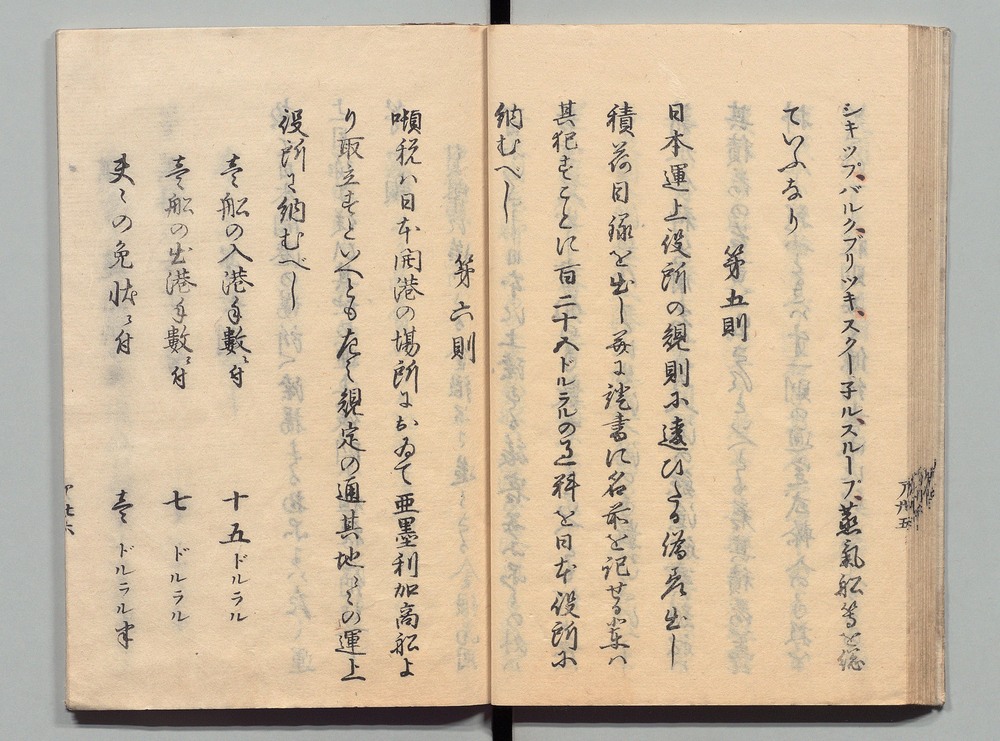 シキップ、バルク、ブリツキ、スクー子ル、スループ、蒸氣船等を総
ていふなり
第五則
日本運上役所の規則に違ひたる偽差出し
積荷目録を出し并に證書に名前を記せる輩ハ
其犯すことに百二十五ドルラルの過料を日本役所に
納むべし
第六則
噸税ハ日本開港の場所におゐて亜墨利加商船よ
り取立すといへとも左之規定の通其地々の運上
役所に納むべし
壱船の入港手數ニ付 十五ドルラル
壱船の出港手數ニ付 七ドルラル
夫々の免状ニ付 壱ドルラル半